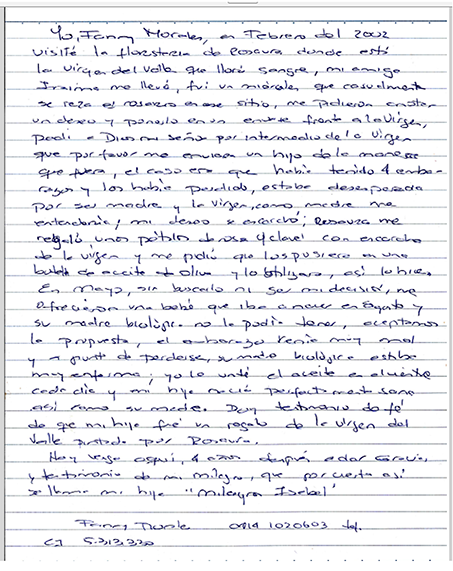 Yo, Fanny Morales, en Febrero del 2002
visité la floristería de Rosaura donde está
la virgen del valle que lloró sangre, mi amiga
Iraima me llevó, fui un miércoles que casualmente
se reza el rosario en ese sitio, me pidieron anotar
un deseo y ponerlo en un envase frente a la Virgen,
pedí a Dios mi señor por intermedio de la Virgen
que por favor me enviara un hijo de la manera
que fuera, el caso era que había tenido 4 emba-
razos y los había perdido, estaba desesperada
por ser madre y la virgen como madre me
entendería; mi deseo se escarchó; Rosaura me
regaló unos pétalos de rosa y clavel con escarcha
de la virgen y me pidió que los pusiera en una
botella de aceite de oliva y lo utilizara, así lo hice.
En Mayo, sin buscarlo ni ser mi decisión, me
ofrecieron una bebé que iba a nacer en Agosto y
su madre biológica no la podía tener, aceptamos
la propuesta, el embarazo venía muy mal
y a punto de perderse, su madre biológica estaba
muy enferma; yo le unté el aceite en el vientre
cada día y mi hija nació perfectamente sana
así como su madre. Doy testimonio de fé
de que mi hija fué un regalo de la virgen del
Valle prestada por Rosaura.
Hoy vengo aquí, 4 años después a dar gracias
y testimonio de mi milagro, que por cierto así
se llama mi hija "Milagro Isabel"
Fanny 0414 1020603 tel.
CI 5.313.330